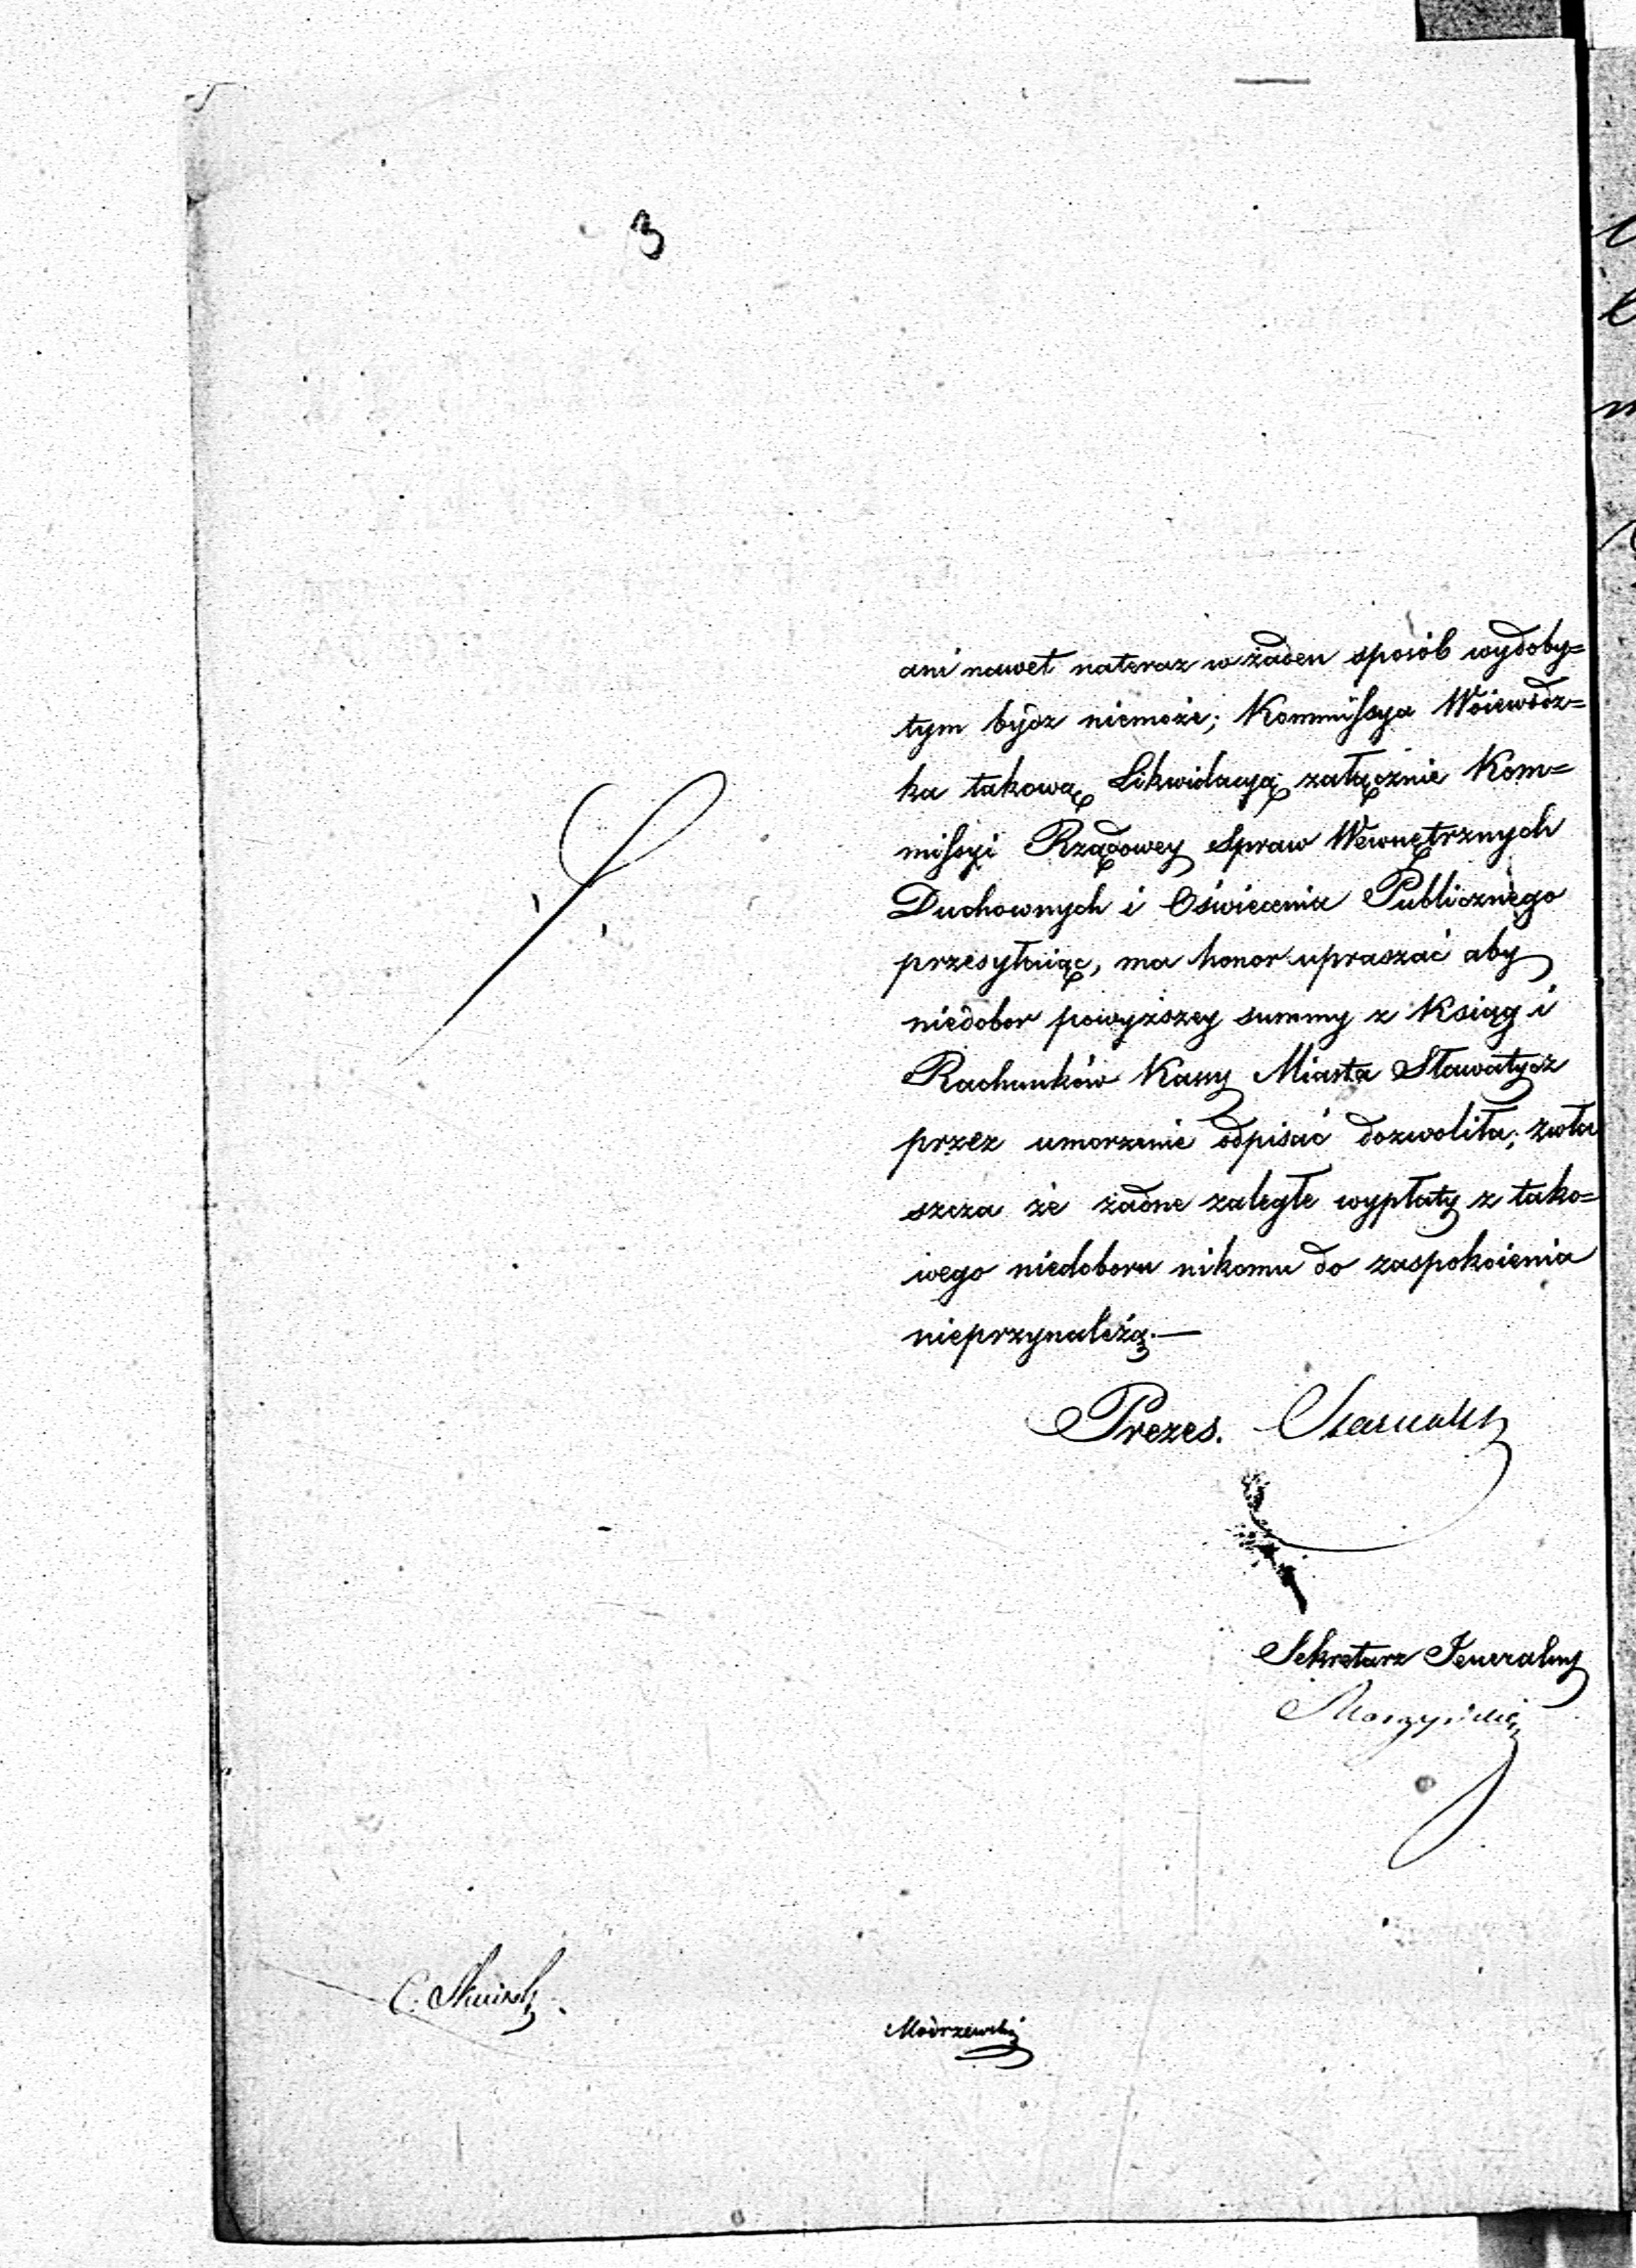 3
ani nawet nateraz w żaden sposób wydoby=
tym bydz niemoże; Kommissya Woiewódz=
ka takową Likwidacyą załącznie Kom=
missyi Rządowey Spraw Wewnętrznych
Duchownych i Oświecenia Publicznego
przesyłaiąc, ma honor upraszać aby
niedobor powyższey summy z Ksiąg i
Rachunków Kassy Miasta Sławatycz
przez umorzenie odpisać dozwoliła; zwła
szcza że żadne zaległe wypłaty z tako=
wego niedoboru nikomu do zaspokoienia
nieprzynależą.—
Prezes.
Sekretarz Jeneralny
Modrzewski